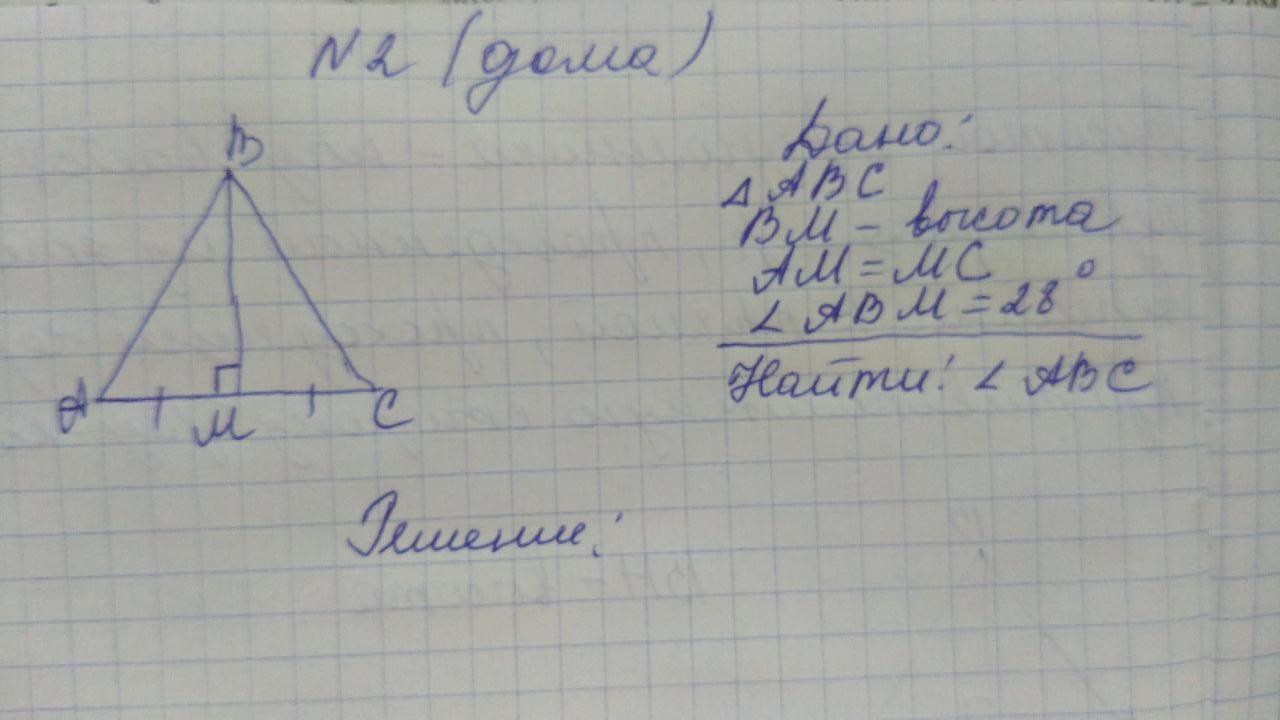 N2 (дома)
B
A
M
C
Дано:
△ ABC
BM - высота
AM = MC
∠ ABM = 28°
Найти: ∠ ABC
Решение: